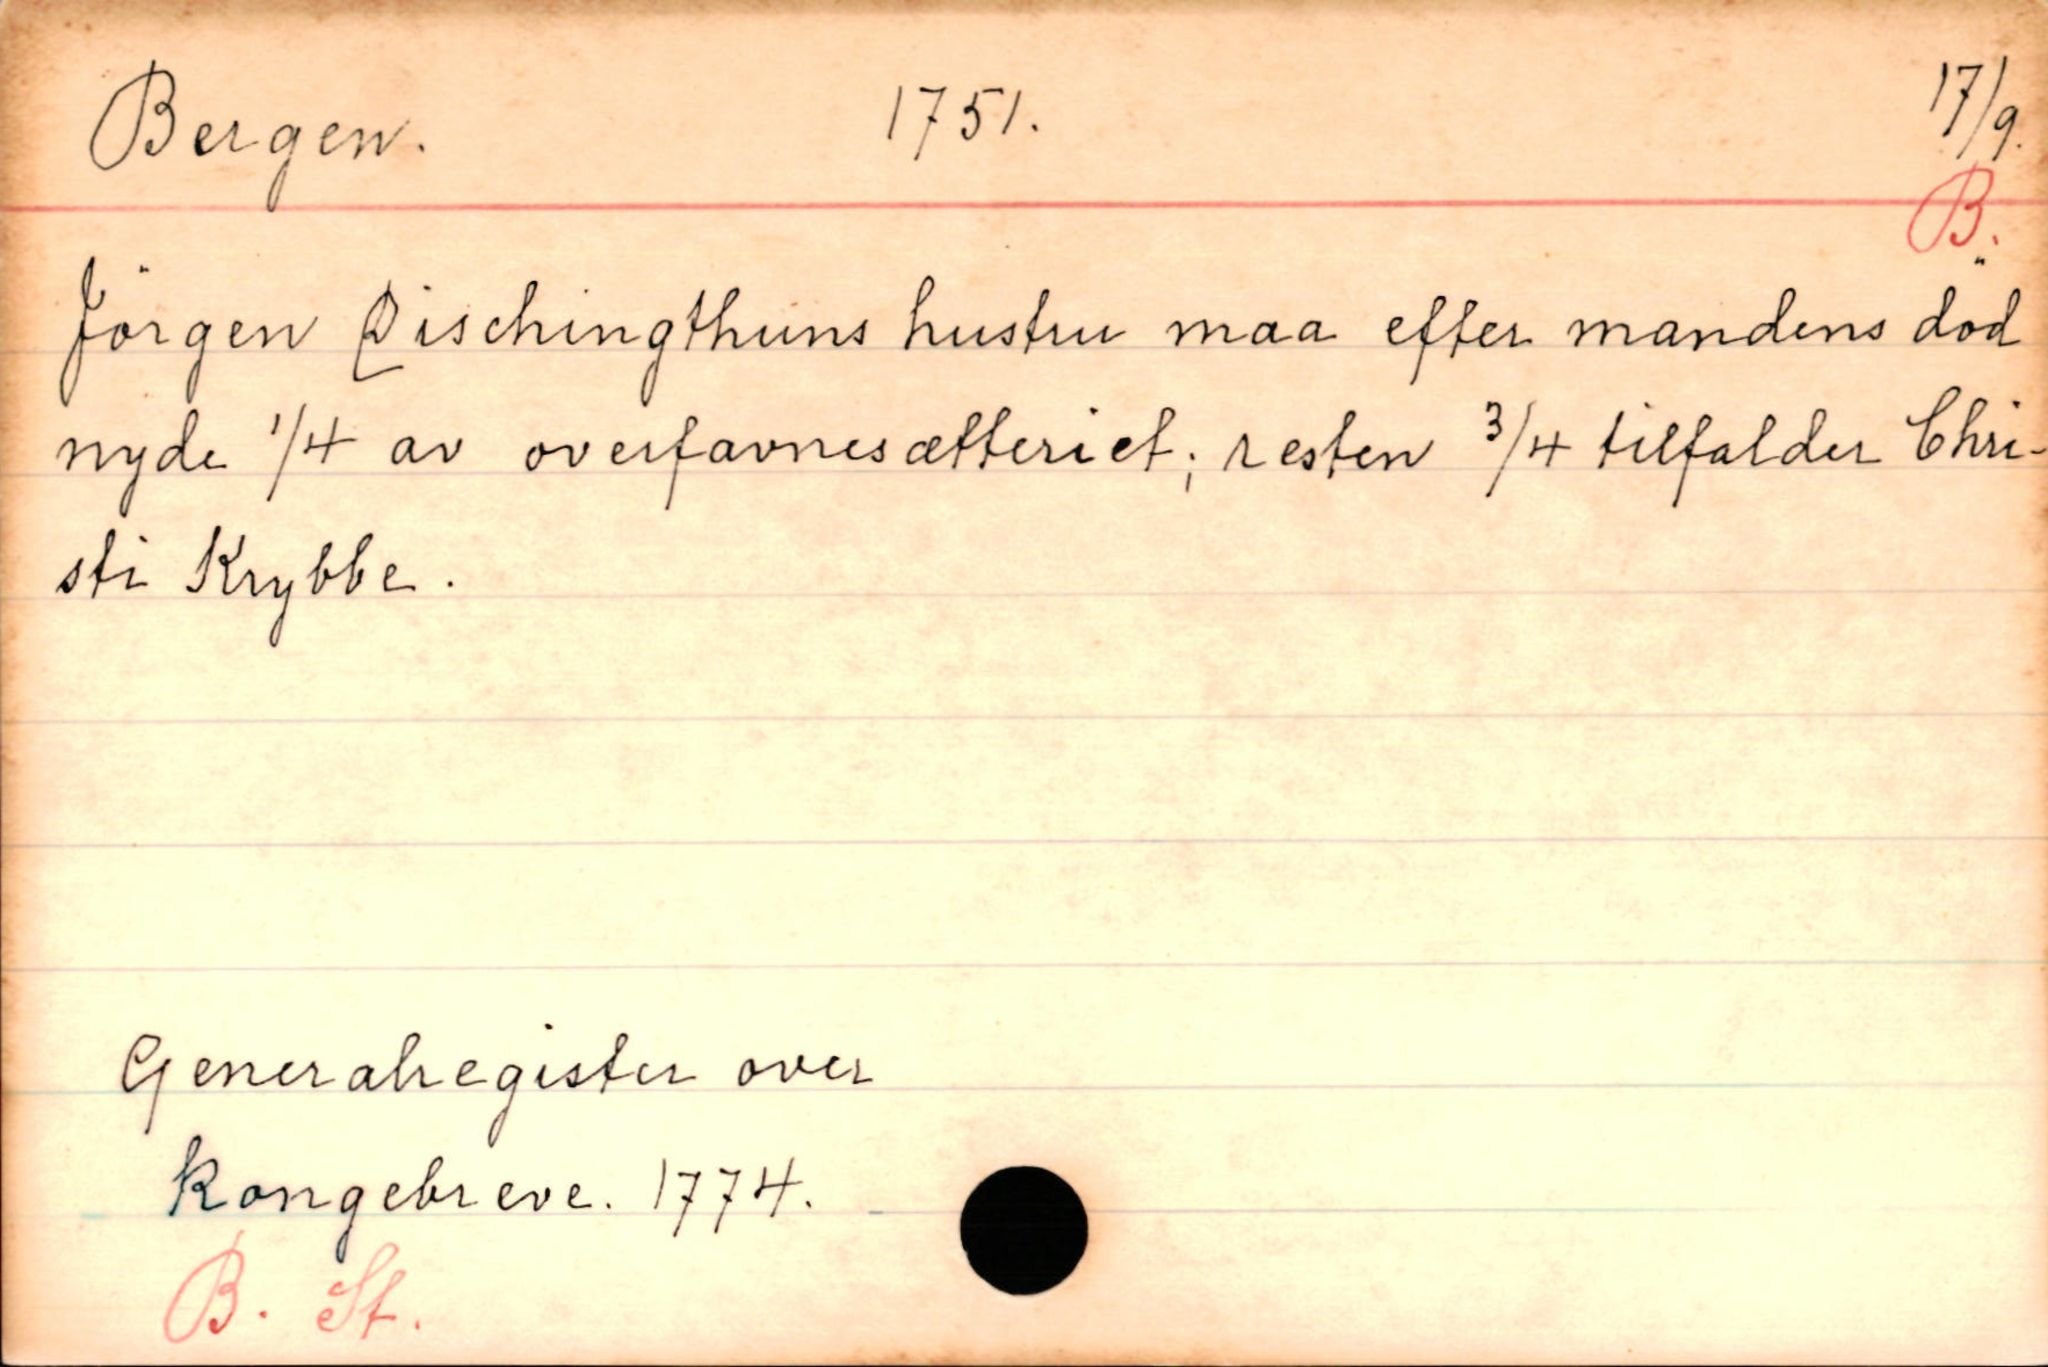 Bergen. 1751. 17/9.
B.
Jörgen Dischingthuns hustru maa efter mandens död
nyde 1/4 av overfavnesætteriet; resten 3/4 tilfalder Chri-
sti Krybbe.
Generalregister over
Kongebreve. 1774.
B. St.